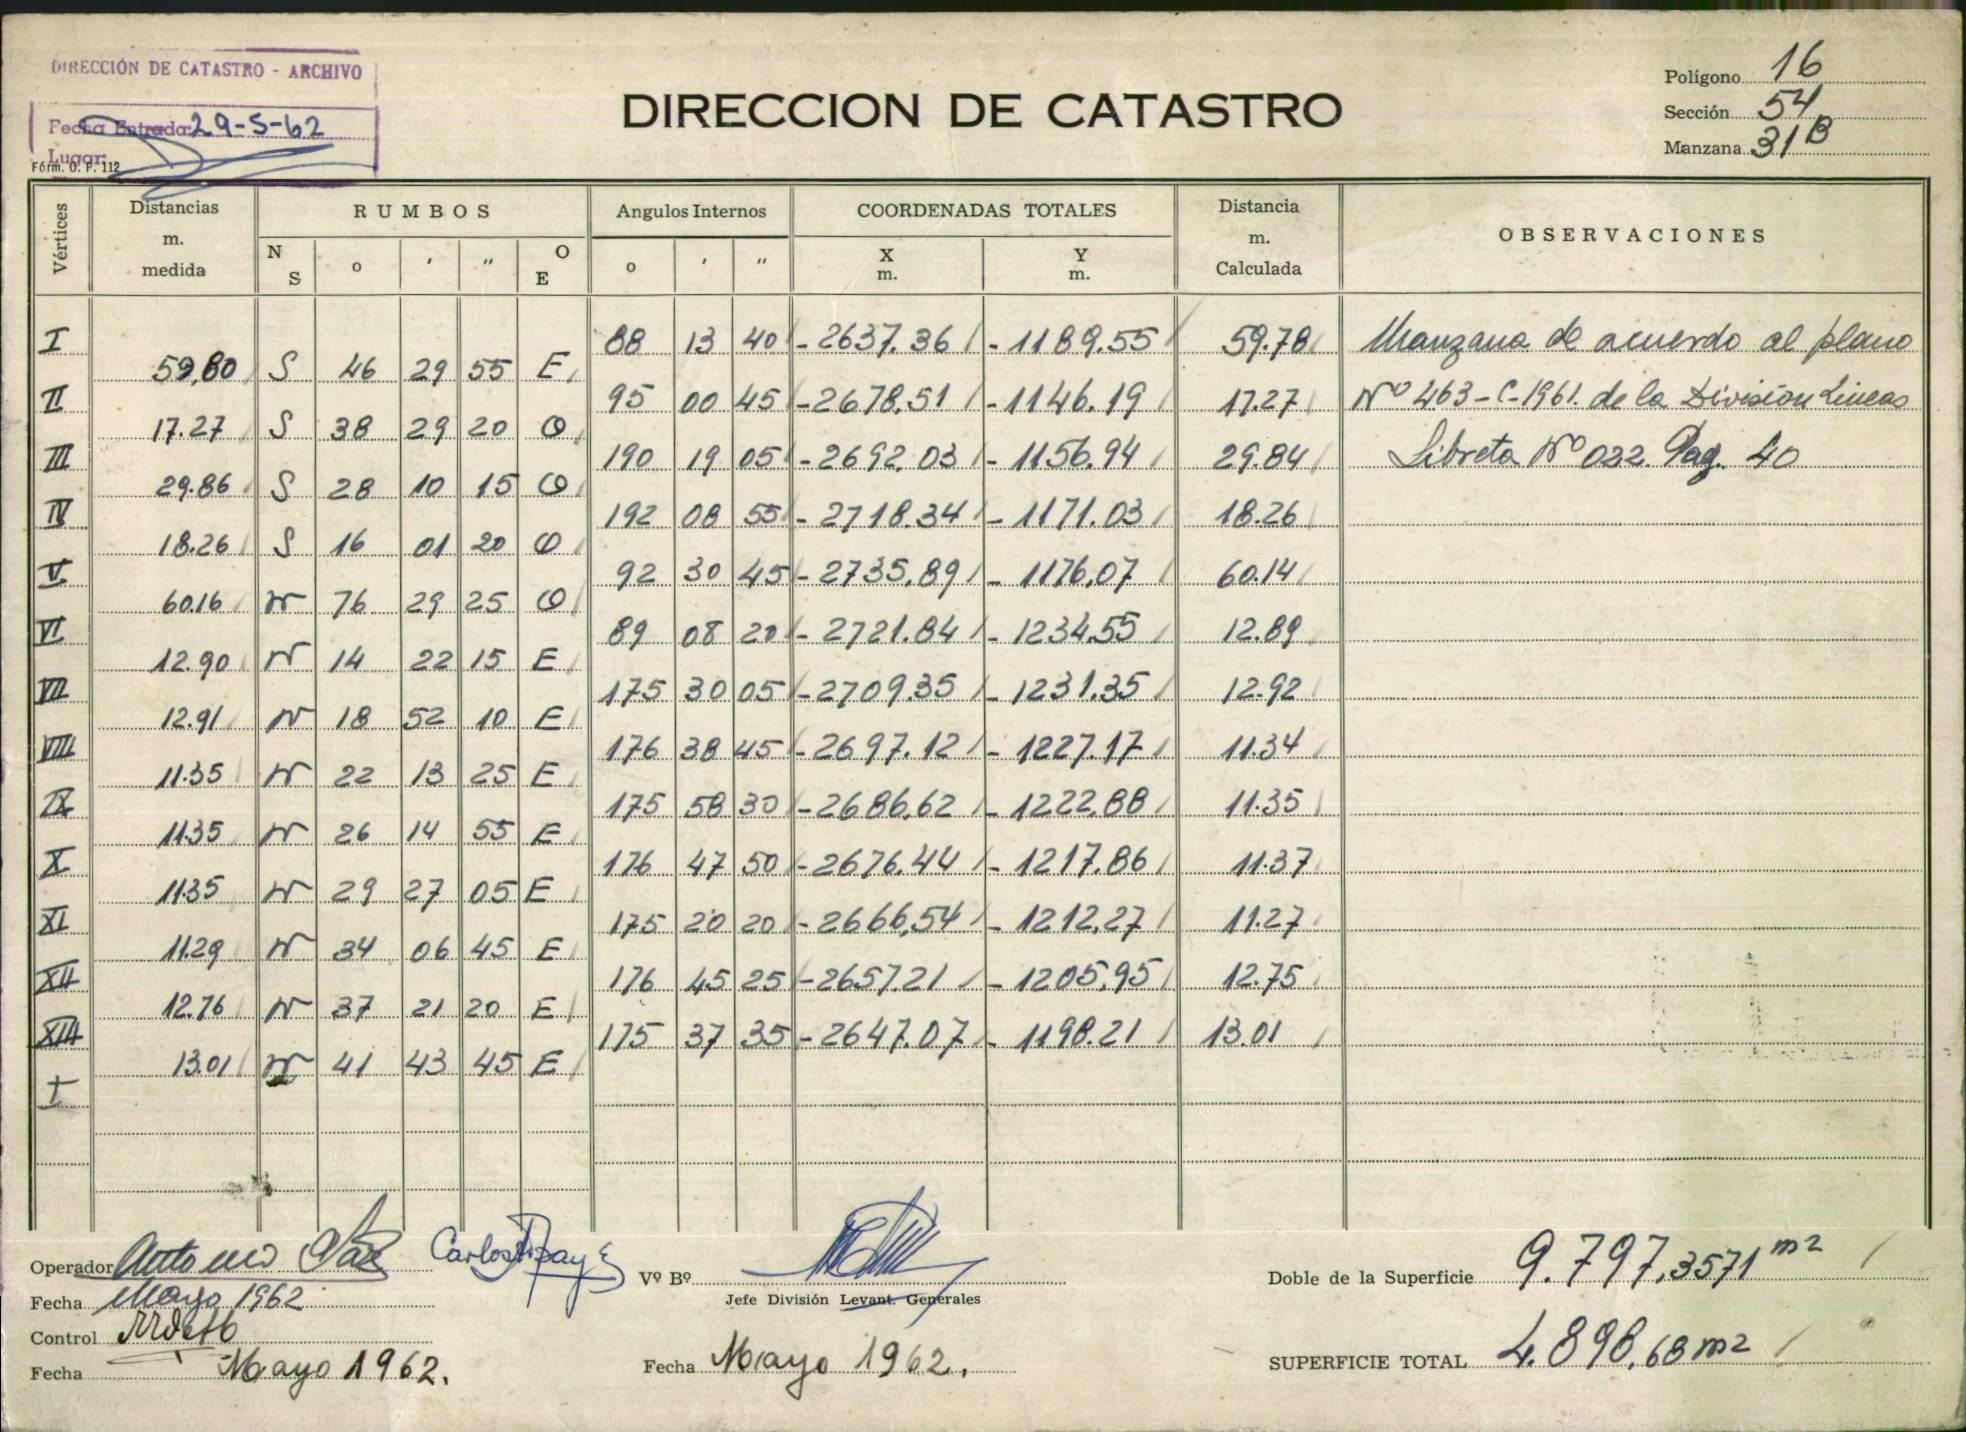 DIRECCIÓN DE CATASTRO - ARCHIVO
Fecha Entrada: 29-5-62
Lugar:
Fórm. O. P. 112
DIRECCION DE CATASTRO
Polígono 16
Sección 54
Manzana 31B
Vértices Distancias m. medida RUMBOS Angulos Internos COORDENADAS TOTALES Distancia m. Calculada OBSERVACIONES
N S o ' " O E o ' " X m. Y m.
I 88 13 40 -2637.36 -1189.55 59.78 Manzana de acuerdo al plano
59,80 S 46 29 55 E
II 95 00 45 -2678,51 -1146.19 17.27 Nº 463-C-1961. de la División Lineas
17.27 S 38 29 20 O
III 190 19 05 -2692.03 -1156.94 29.84 Libreta Nº 022. Pag. 40
29.86 S 28 10 15 O
IV 192 08 55 -2718.34 -1171.03 18.26
18.26 S 16 01 20 O
V 92 30 45 -2735,89 -1176,07 60.14
60.16 N 76 29 25 O
VI 89 08 20 -2721.84 -1234.55 12.89
12.90 N 14 22 15 E
VII 175 30 05 -2709.35 -1231.35 12.92
12.91 N 18 52 10 E
VIII 176 38 45 -2697.12 -1227.17 11.34
11.35 N 22 13 25 E
IX 175 58 30 -2686,62 -1222,88 11.35
11.35 N 26 14 55 E
X 176 47 50 -2676.44 -1217.86 11.37
11.35 N 29 27 05 E
XI 175 20 20 -2666,54 -1212,27 11.27
11.29 N 34 06 45 E
XII 176 45 25 -2657.21 -1205,95 12.75
12.76 N 37 21 20 E
XIII 175 37 35 -2647.07 -1198.21 13.01
13.01 N 41 43 45 E
I
Operador Antonio
Carlos
Vº Bº
Jefe División Levant. Generales
Doble de la Superficie 9.797,3571 m2
Fecha Mayo 1962
Control
Fecha Mayo 1962.
Fecha Mayo 1962.
SUPERFICIE TOTAL 4.898,68 m2